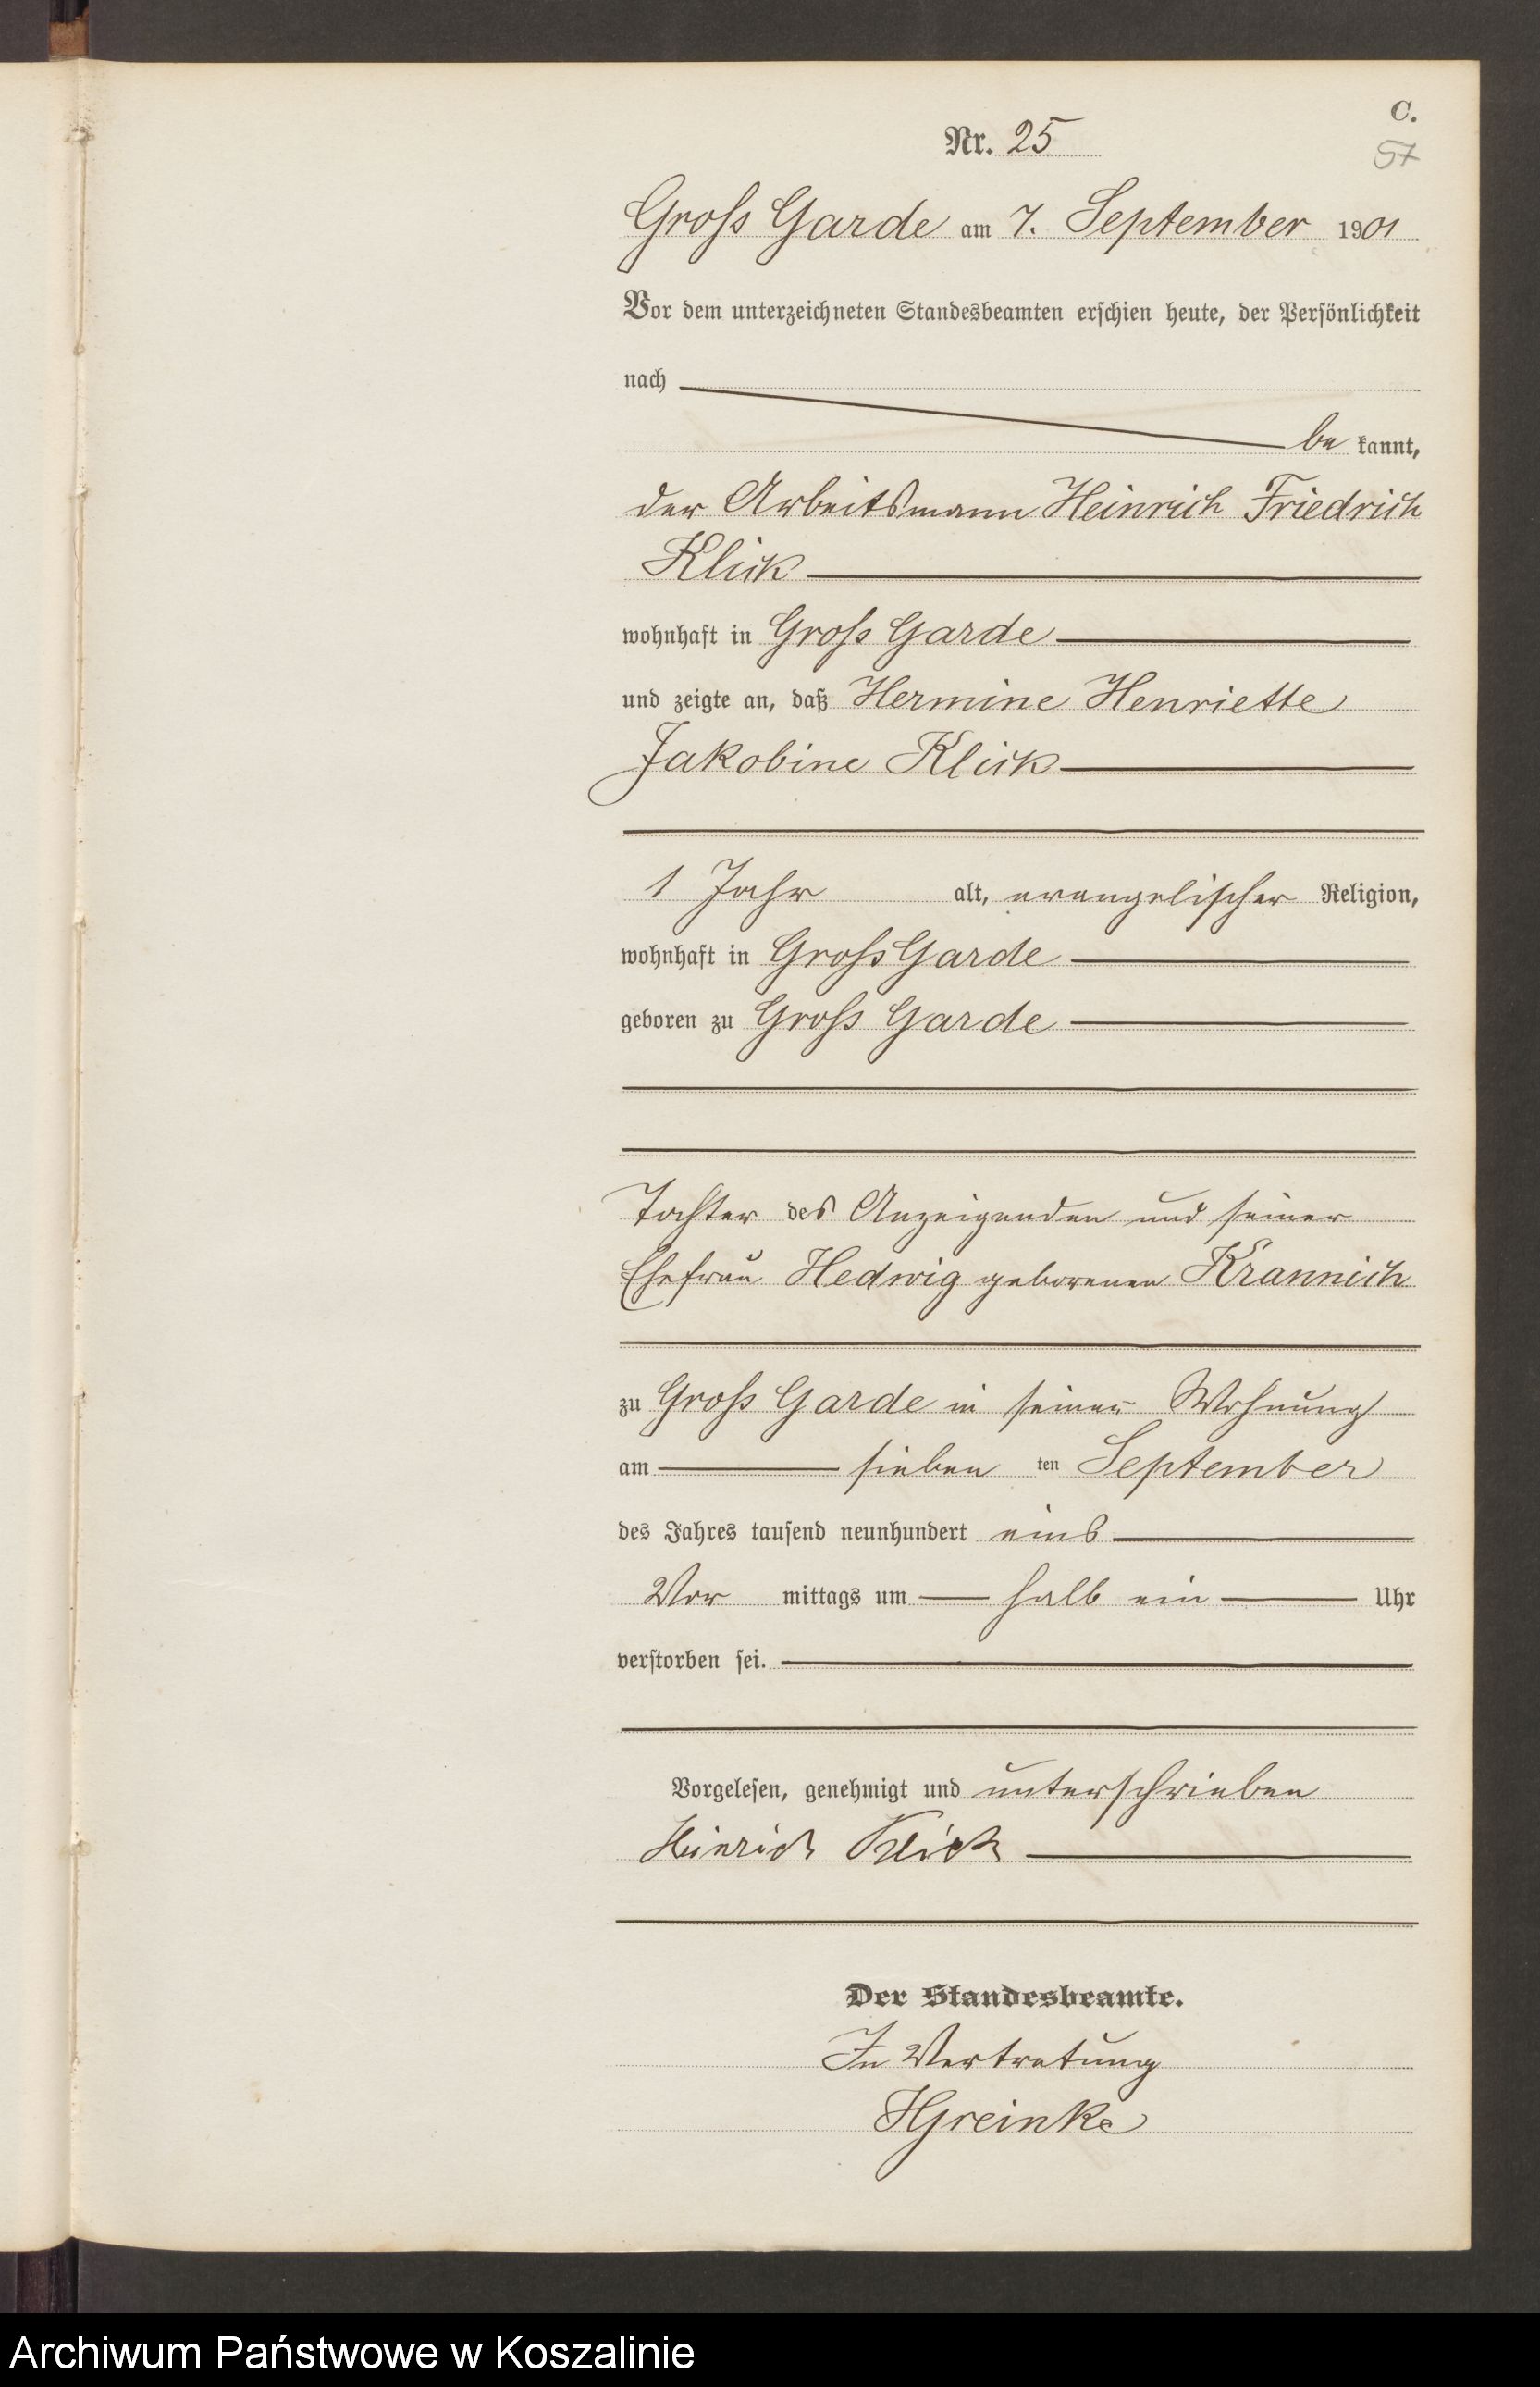 C.
Nr. 25
57
Gross Garde am 7. September 1901
Vor dem unterzeichneten Standesbeamten erschien heute, der Persönlichkeit
nach
be kannt,
der Arbeitsmann Heinrich Friedrich
Klick
wohnhaft in Gross Garde
und zeigte an, daß Hermine Henriette
Jakobine Klick
1 Jahr alt, evangelischer Religion,
wohnhaft in Gross Garde
geboren zu Gross Garde
Tochter des Anzeigenden und seiner
Ehefrau Hedwig geborenen Krannich
zu Gross Garde in seiner Wohnung
am sieben ten September
des Jahres tausend neunhundert eins
Vor mittags um halb ein Uhr
verstorben sei.
Vorgelesen, genehmigt und unterschrieben
Heinrich Klick
Der Standesbeamte.
In Vertretung
HGreinke
Archiwum Państwowe w Koszalinie